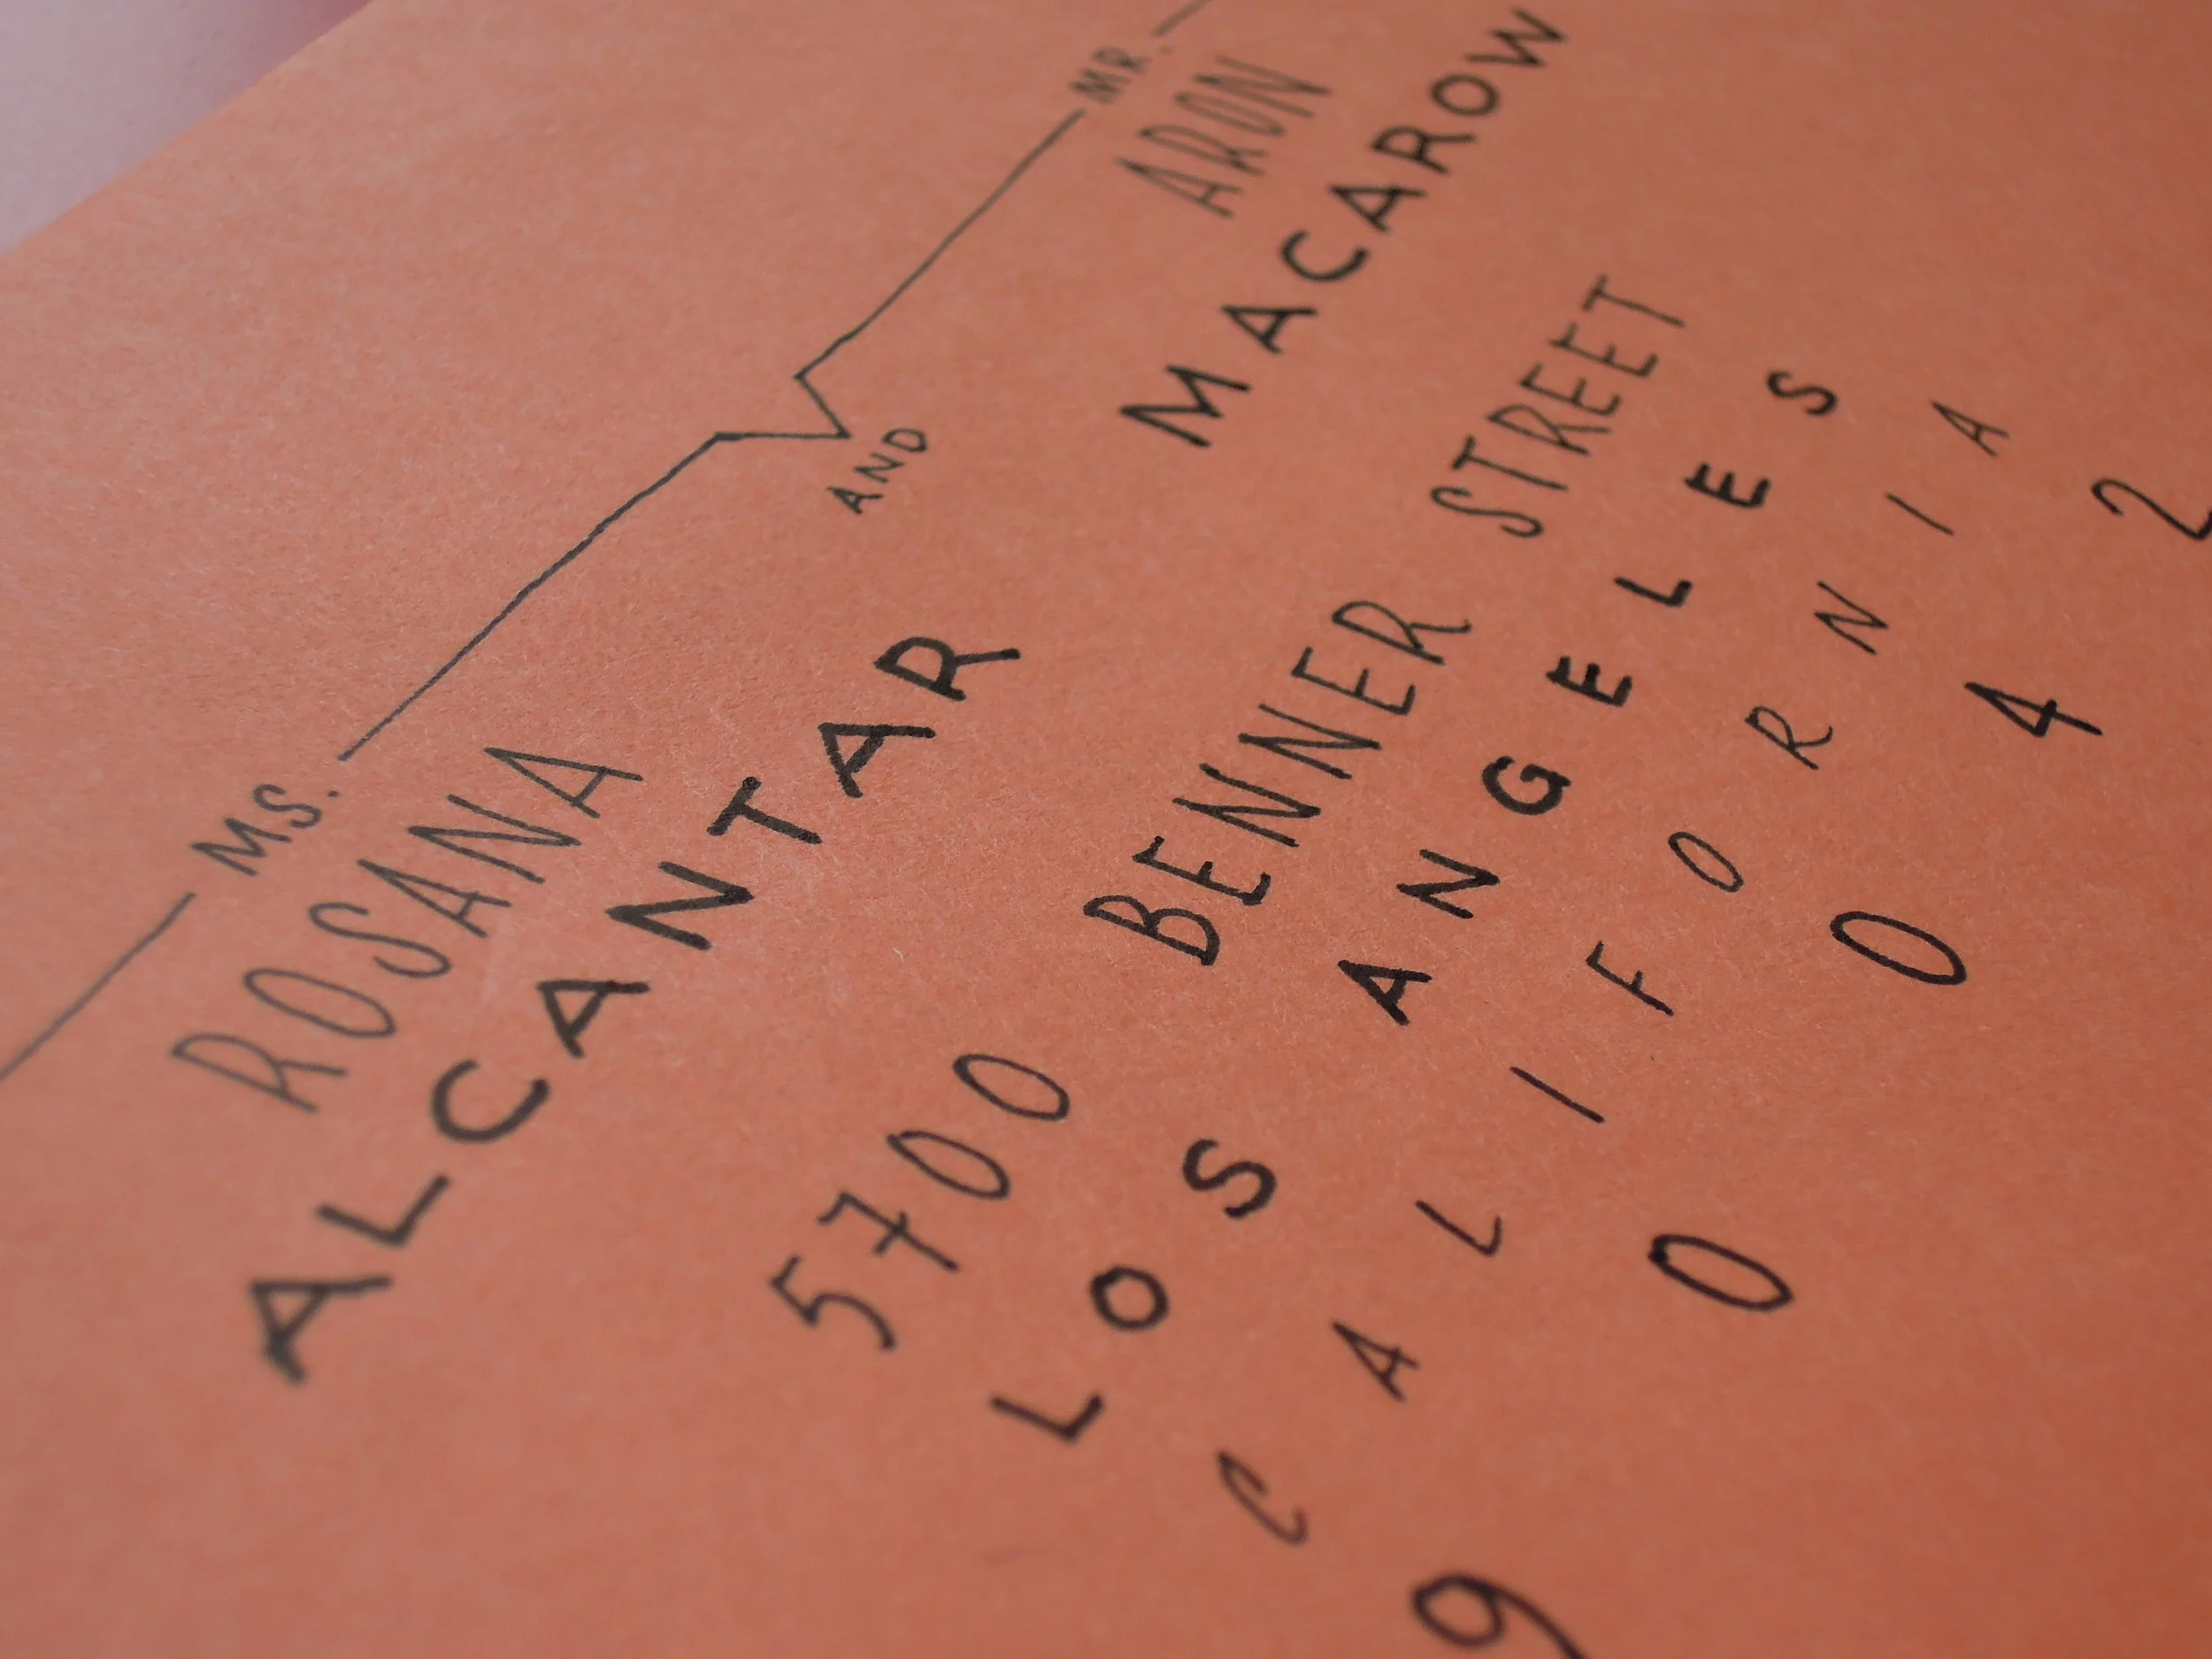 MS. MR.
ROSANA AND ARON
ALCANTAR MACAROW
5700 BENNER STREET
LOS ANGELES
CALIFORNIA
90042